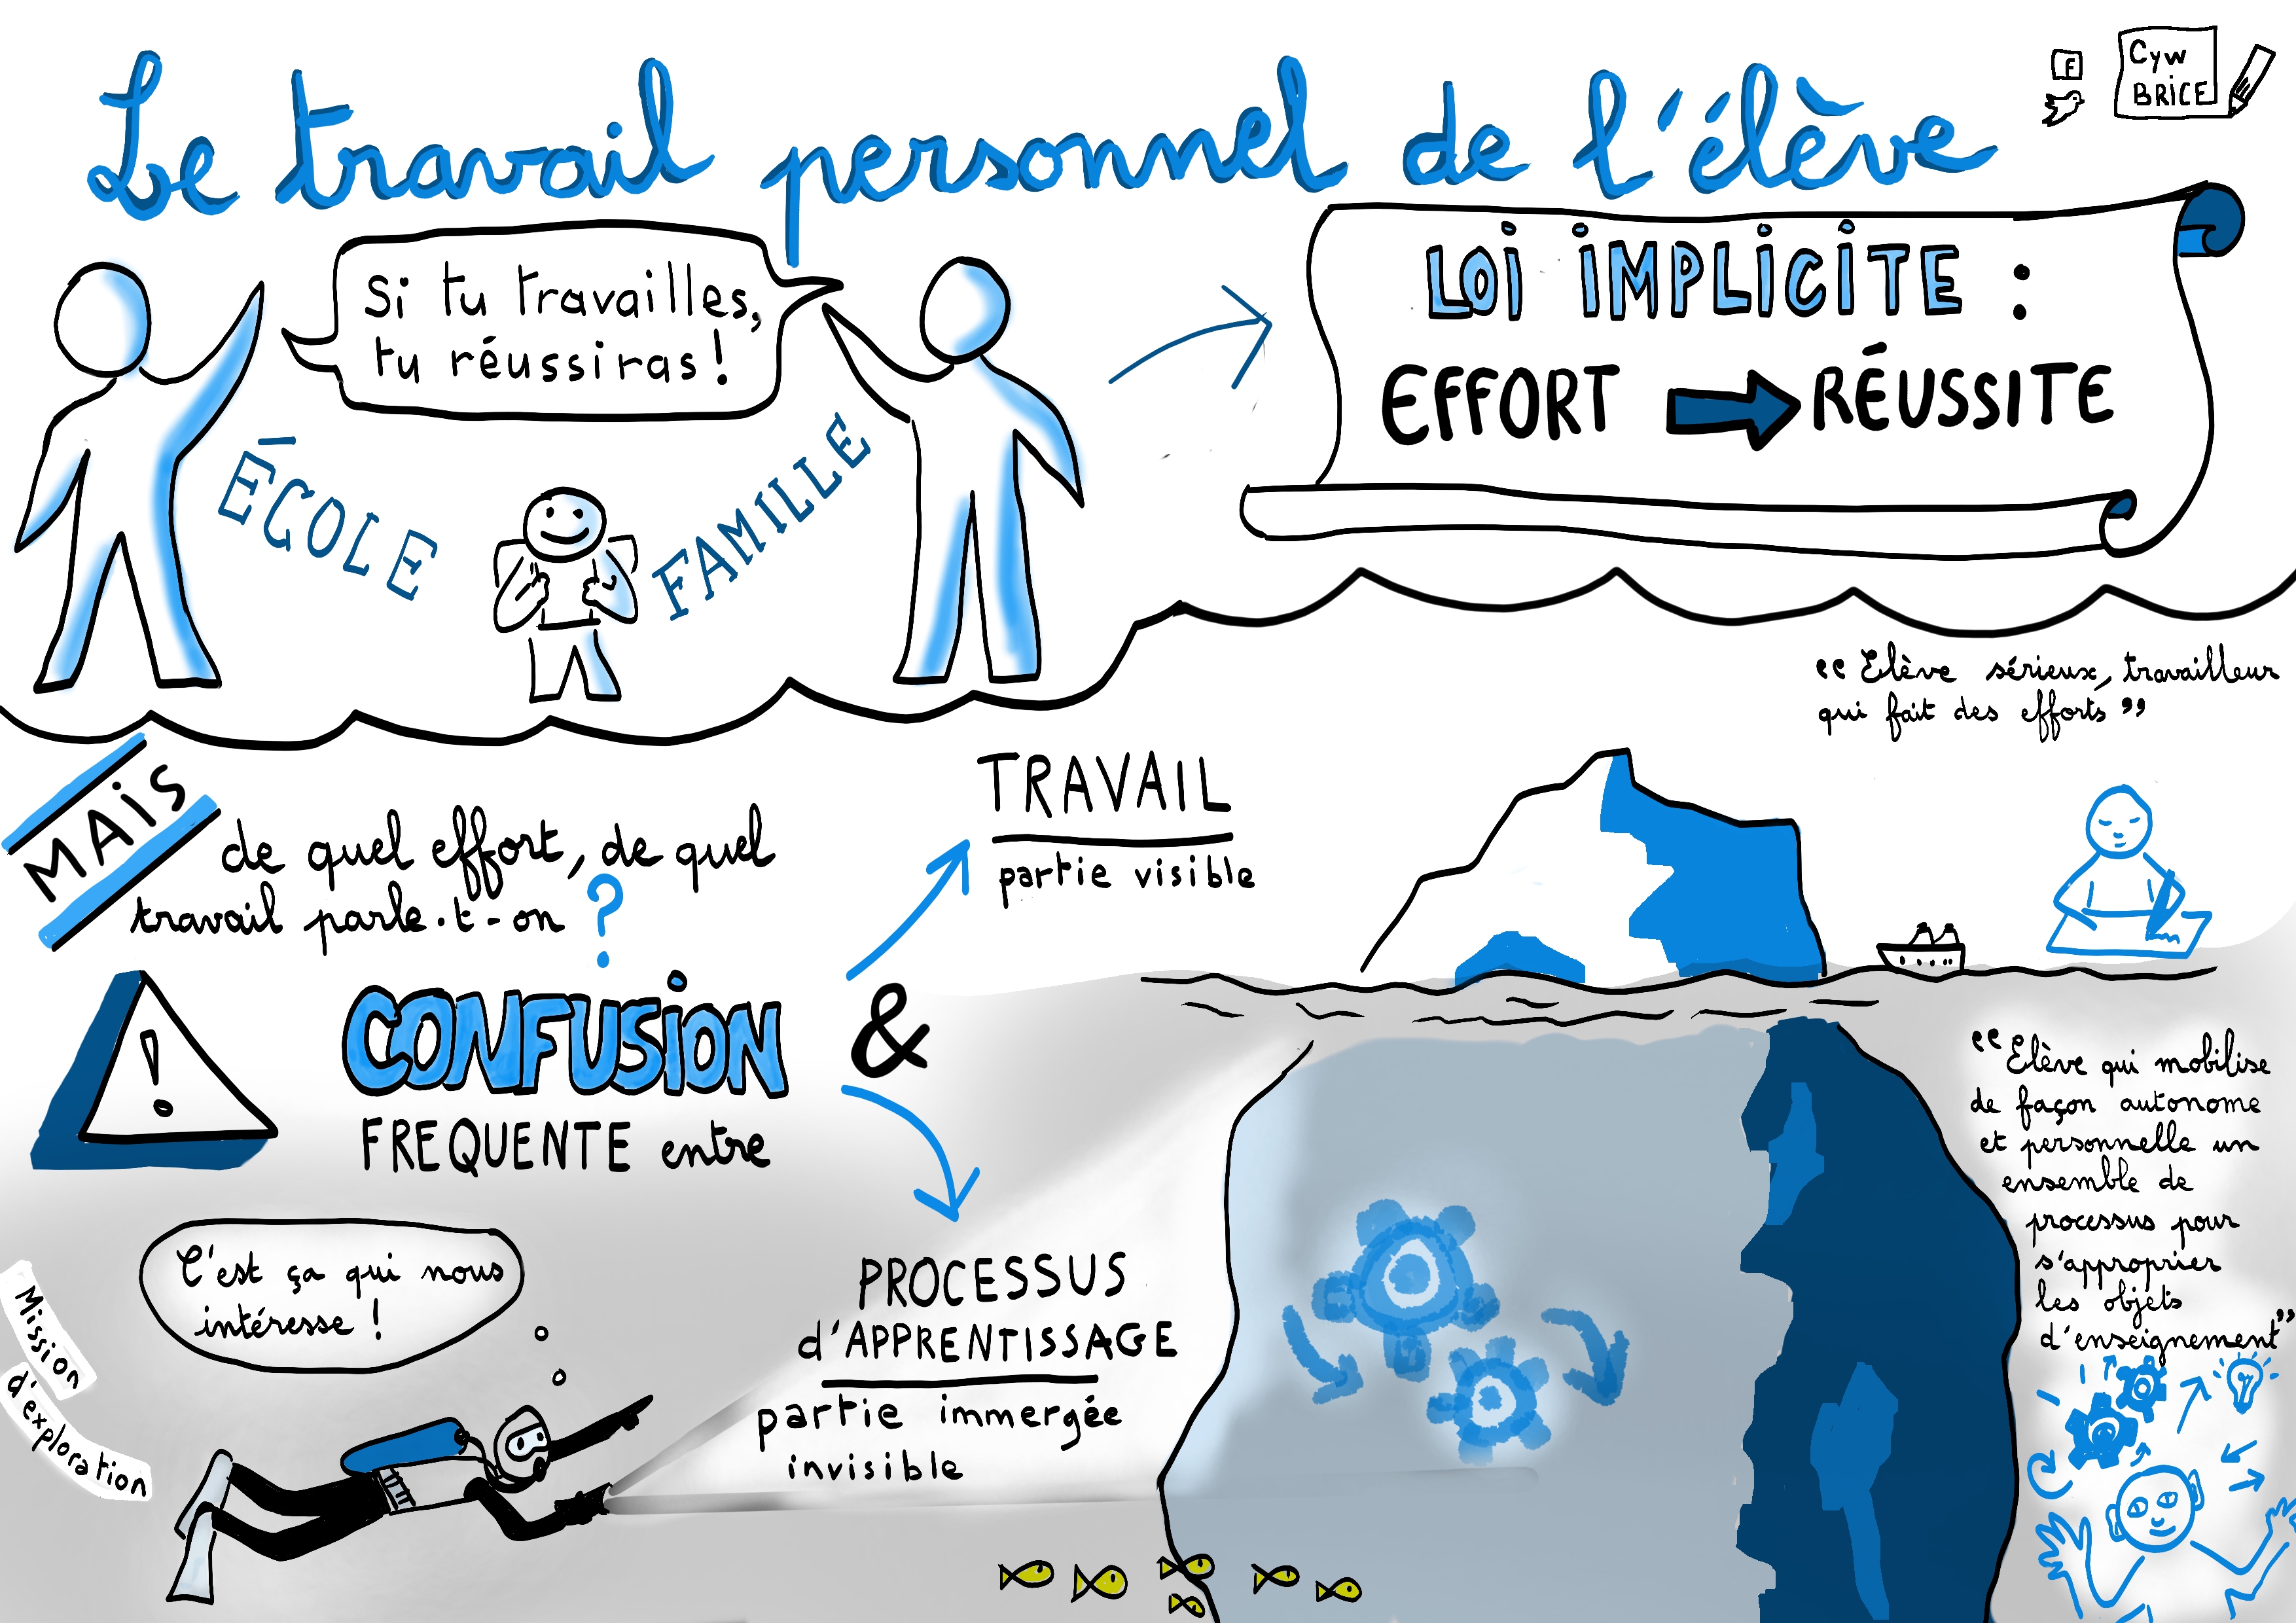 Le travail personnel de l'élève
F
Cyw
BRiCE
Si tu travailles,
tu réussiras !
ÉCOLE
FAMILLE
LOi iMPLiCiTE :
EFFORT → RÉUSSITE
MAiS
de quel effort, de quel
travail parle.t-on ?
CONFUSiON
FREQUENTE entre
&
TRAVAIL
partie visible
"Elève sérieux, travailleur
qui fait des efforts"
PROCESSUS
d'APPRENTISSAGE
partie immergée
invisible
"Elève qui mobilise
de façon autonome
et personnelle un
ensemble de
processus pour
s'approprier
les objets
d'enseignement"
!
C'est ça qui nous
intéresse !
Mission
d'exploration